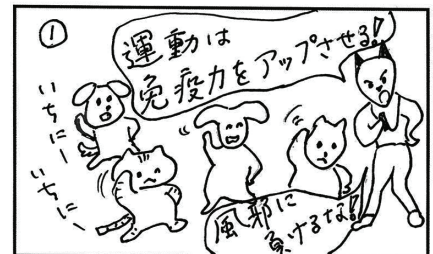 ①
運動は
免疫力をアップさせる!
いちにー
いちにー
風邪に
負けるな!